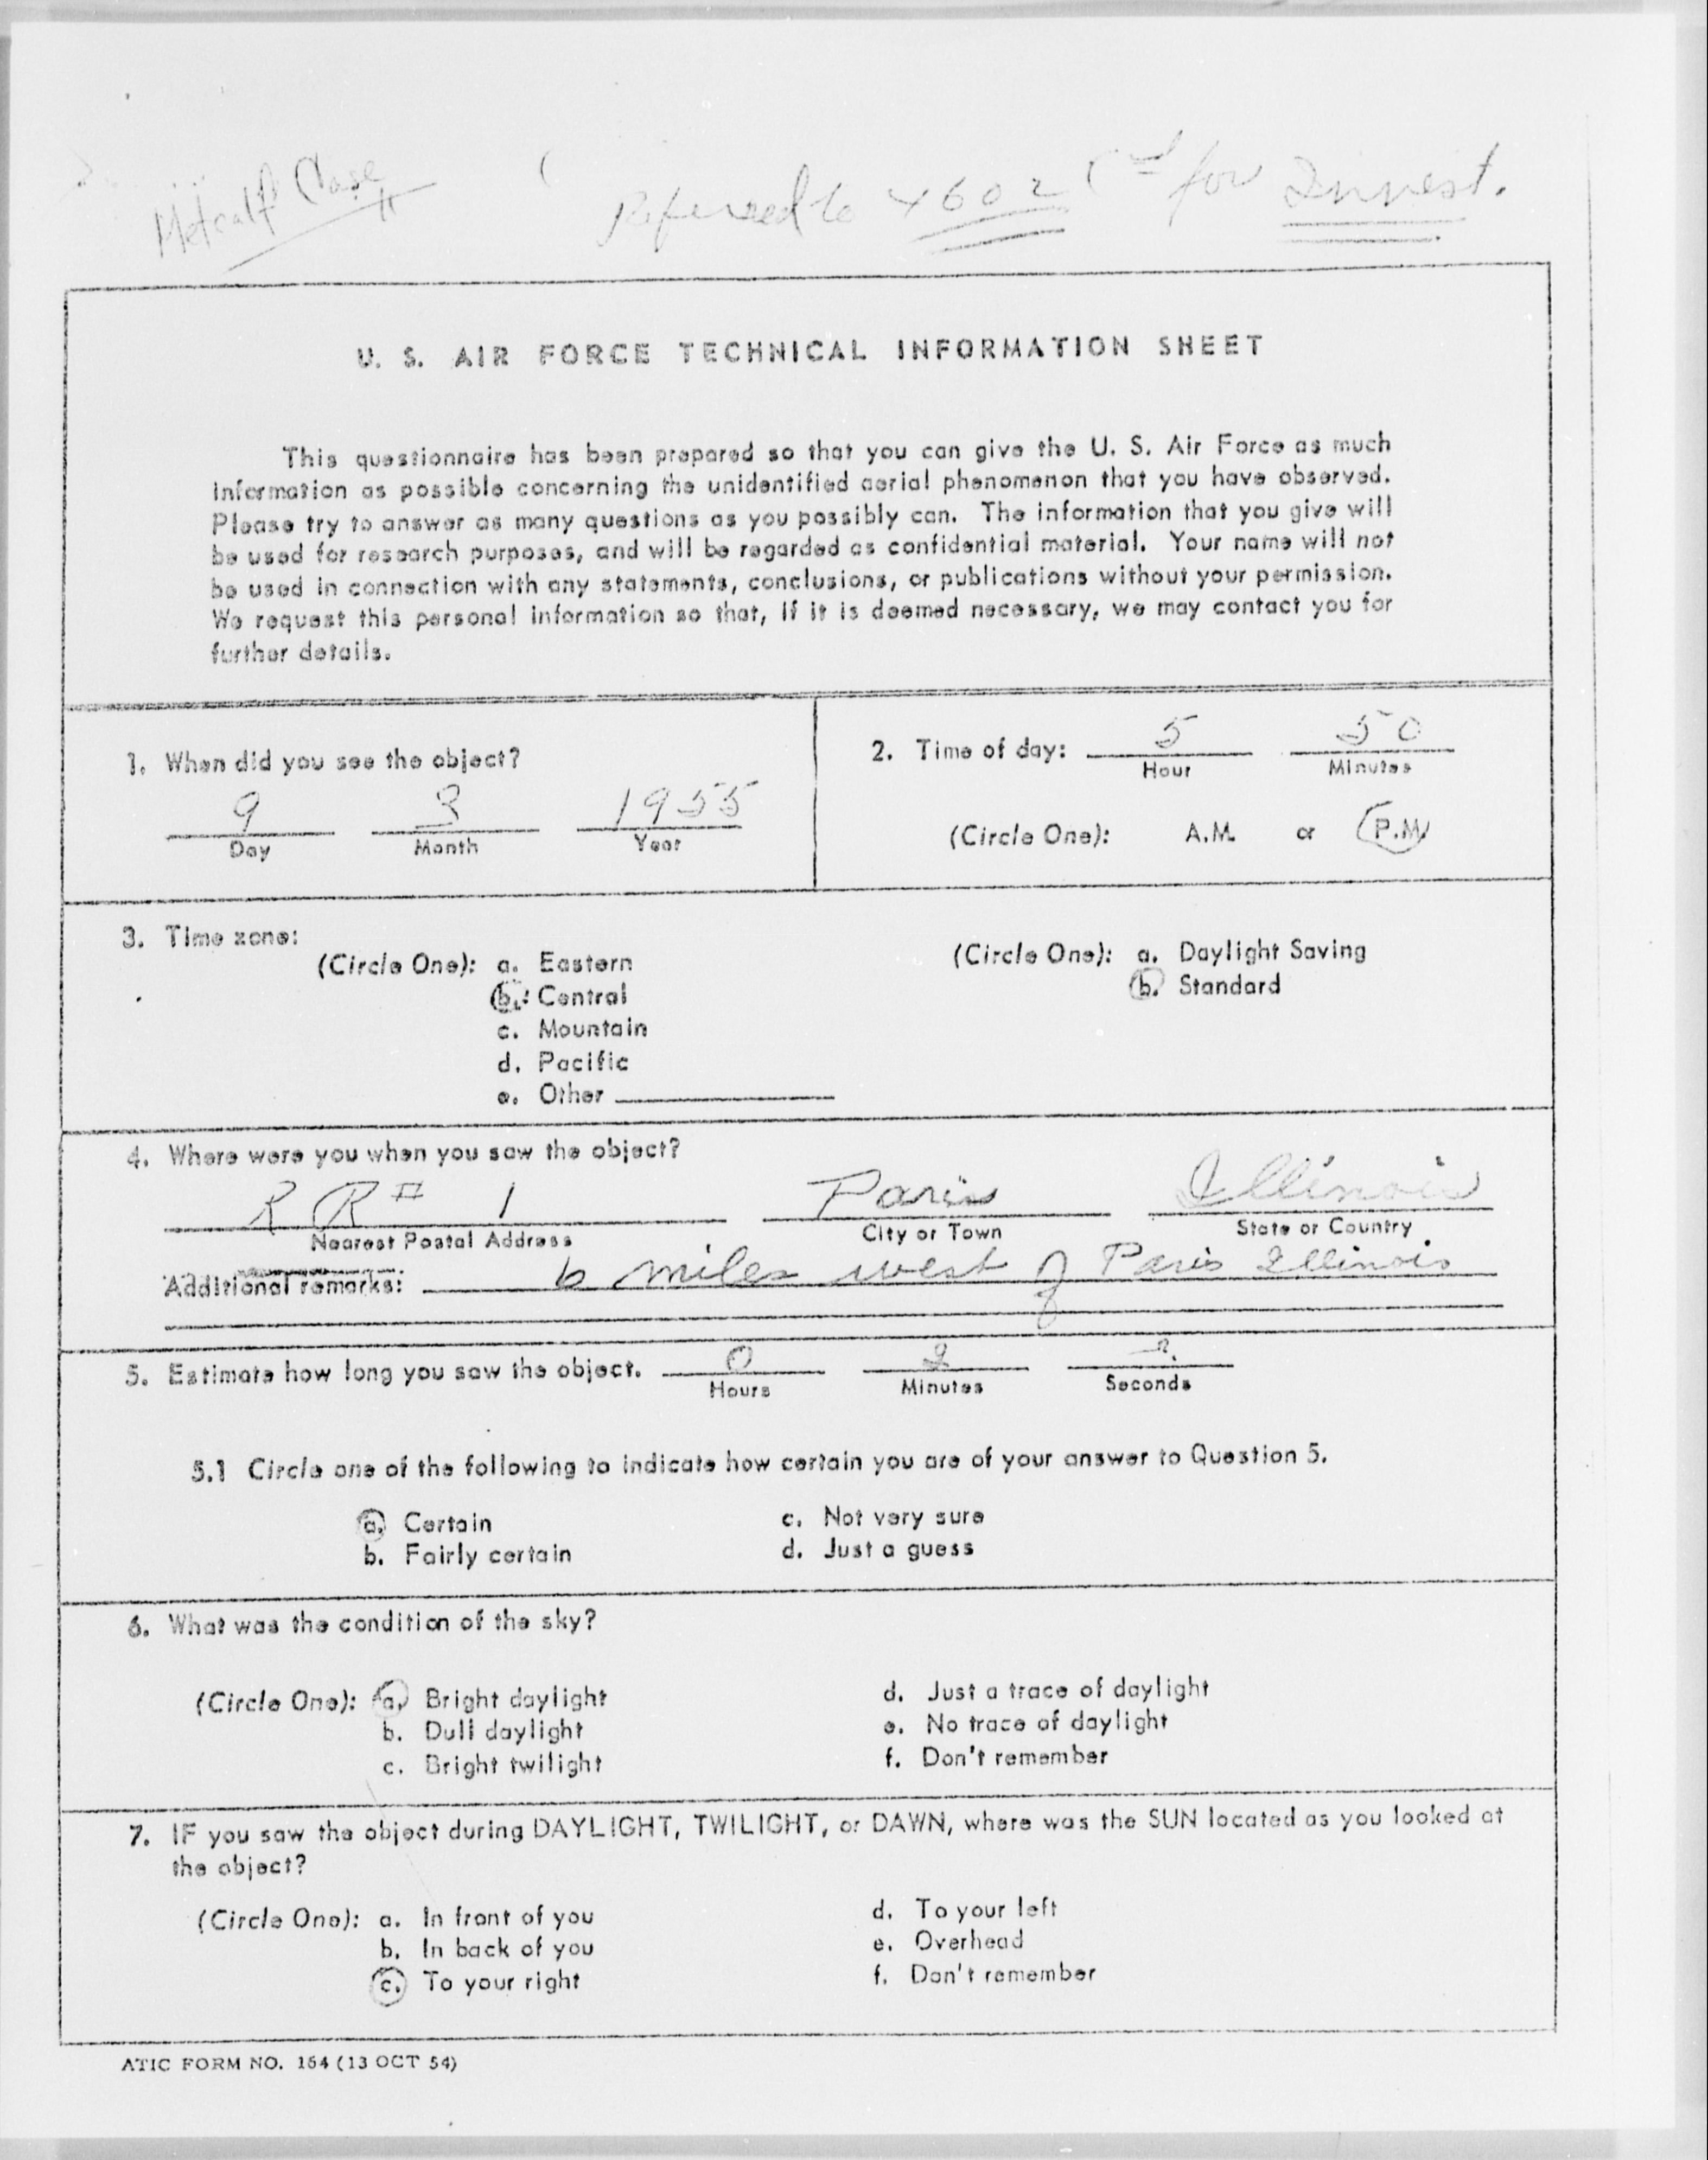 Metcalf Case
Referred to 4602 for Invest.
U. S. AIR FORCE TECHNICAL INFORMATION SHEET
This questionnaire has been prepared so that you can give the U. S. Air Force as much
information as possible concerning the unidentified aerial phenomenon that you have observed.
Please try to answer as many questions as you possibly can. The information that you give will
be used for research purposes, and will be regarded as confidential material. Your name will not
be used in connection with any statements, conclusions, or publications without your permission.
We request this personal information so that, if it is deemed necessary, we may contact you for
further details.
1. When did you see the object?
9 1955
Day Month Year
2. Time of day: 5 50
Hour Minutes
(Circle One): A.M. or P.M.
3. Time zone:
(Circle One): a. Eastern
b. Central
c. Mountain
d. Pacific
e. Other
(Circle One): a. Daylight Saving
b. Standard
4. Where were you when you saw the object?
R R # 1 Paris Illinois
Nearest Postal Address City or Town State or Country
Additional remarks: 6 miles west of Paris Illinois
5. Estimate how long you saw the object. 0 2 ?
Hours Minutes Seconds
5.1 Circle one of the following to indicate how certain you are of your answer to Question 5.
a. Certain c. Not very sure
b. Fairly certain d. Just a guess
6. What was the condition of the sky?
(Circle One): a. Bright daylight d. Just a trace of daylight
b. Dull daylight e. No trace of daylight
c. Bright twilight f. Don't remember
7. IF you saw the object during DAYLIGHT, TWILIGHT, or DAWN, where was the SUN located as you looked at
the object?
(Circle One): a. In front of you d. To your left
b. In back of you e. Overhead
c. To your right f. Don't remember
ATIC FORM NO. 164 (13 OCT 54)